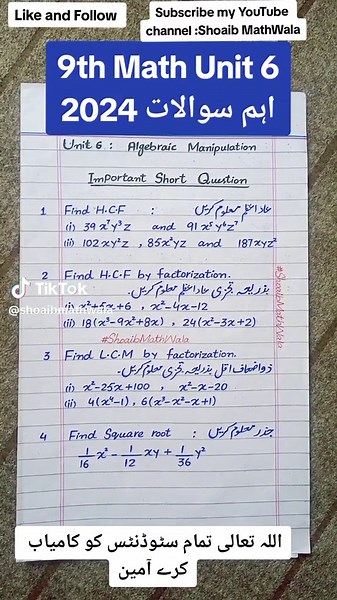 Like and Follow
Subscribe my YouTube
channel :Shoaib MathWala
9th Math Unit 6
اہم سوالات 2024
Unit 6 : Algebraic Manipulation
Important Short Question
1 Find H.C.F : عاداعظم معلوم کریں
(i) 39x⁷y³z and 91x⁵y⁶z⁷
(ii) 102xy²z , 85x²yz and 187xyz²
2 Find H.C.F by factorization.
بذریعہ تجزی عاداعظم معلوم کریں۔
(i) x²+5x+6 , x²-4x-12
(ii) 18(x³-9x²+8x) , 24(x²-3x+2)
TikTok
@shoaibmathwala
#ShoaibMathWala
#ShoaibMathWala
3 Find L.C.M by factorization.
ذواضعاف اقل بذریعہ تجزی معلوم کریں۔
(i) x²-25x+100 , x²-x-20
(ii) 4(x⁴-1), 6(x³-x²-x+1)
4 Find Square root : جذر معلوم کریں
1/16 x² - 1/12 xy + 1/36 y²
اللہ تعالی تمام سٹوڈنٹس کو کامیاب
کرے آمین